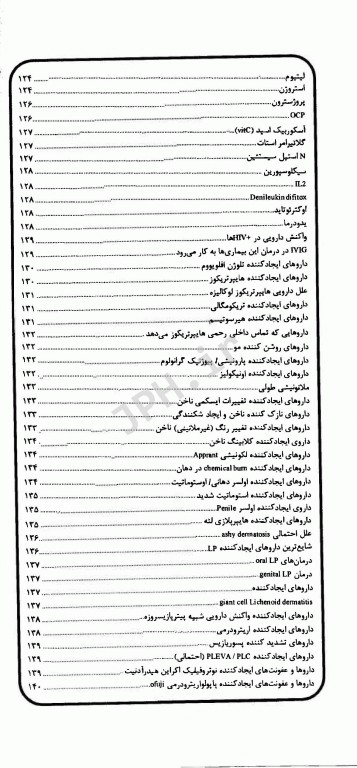 لیتیوم ۱۲۴
استروژن ۱۲۴
پروژسترون ۱۲۶
OCP ۱۲۶
آسکوربیک اسید (vitC) ۱۲۷
گلاتیرامر استات ۱۲۷
N استیل سیستئین ۱۲۷
سیکلوسپورین ۱۲۸
IL2 ۱۲۸
Denileukin difitox ۱۲۸
اوکترئوتاید ۱۲۸
یدودرما ۱۲۸
واکنش دارویی در +HIVها ۱۲۹
IVIG در درمان این بیماری‌ها به کار می‌رود ۱۲۹
داروهای ایجادکننده تلوژن افلوویوم ۱۳۰
داروهای ایجادکننده هایپرتریکوز ۱۳۰
علل دارویی هایپرتریکوز لوکالیزه ۱۳۱
داروهای ایجادکننده تریکومگالی ۱۳۱
داروهای ایجادکننده هیرسوتیسم ۱۳۱
داروهایی که تماس داخلی رحمی هایپرتریکوز می‌دهد ۱۳۲
داروهای روشن کننده مو ۱۳۲
داروهای ایجادکننده پارونیشی/ پیوژنیک گرانولوم ۱۳۲
داروهای ایجادکننده اونیکولیز ۱۳۲
ملانونیشی طولی ۱۳۲
داروهای ایجادکننده تغییرات ایسکمی ناخن ۱۳۳
داروهای نازک کننده ناخن و ایجاد شکنندگی ۱۳۳
داروهای ایجادکننده تغییر رنگ (غیرملانینی) ناخن ۱۳۳
داروی ایجادکننده کلابینگ ناخن ۱۳۴
داروهای ایجادکننده لکونیشی Apprant ۱۳۴
داروهای ایجادکننده chemical burn در دهان ۱۳۴
داروهای ایجادکننده اولسر دهانی/ اوستوماتیت ۱۳۴
داروهای ایجادکننده استوماتیت شدید ۱۳۵
داروی ایجادکننده اولسر Penile ۱۳۵
داروهای ایجادکننده هایپرپلازی لثه ۱۳۵
علل احتمالی ashy dermatosis ۱۳۶
شایع‌ترین داروهای ایجادکننده LP ۱۳۶
درمان‌های oral LP ۱۳۷
درمان genital LP ۱۳۷
داروهای ایجادکننده ۱۳۷
giant cell Lichenoid dermatitis ۱۳۷
داروهای ایجادکننده واکنش دارویی شبیه پیتریازیسروزه ۱۳۸
داروهای ایجادکننده اریترودرمی ۱۳۸
داروهای تشدید کننده پسوریازیس ۱۳۹
داروهای ایجادکننده PLEVA / PLC (احتمالی) ۱۳۹
داروها و عفونت‌های ایجادکننده نوتروفیلیک اکراین هیدرآدنیت ۱۳۹
داروها و عفونت‌های ایجادکننده پاپولواریترودرمی ofuji ۱۴۰